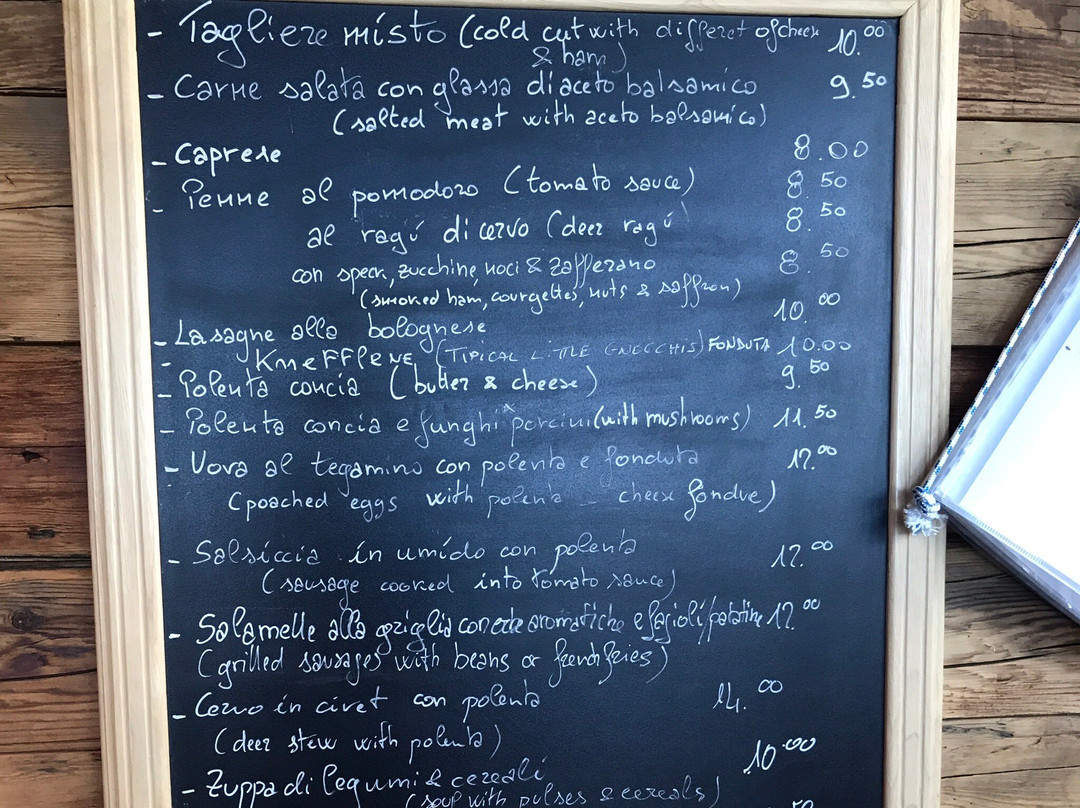 - Tagliere misto (cold cut with differet of cheese 10.00
& ham)
- Carne salata con glassa di aceto balsamico 9.50
(salted meat with aceto balsamico)
- Caprese 8.00
- Penne al pomodoro (tomato sauce) 8.50
al ragú di cervo (deer ragú 8.50
con speck, zucchine, noci & zafferano 8.50
(smoked ham, courgettes, nuts & saffron)
- Lasagne alla bolognese 10.00
- KNEFFLENE (TIPICAL LITTLE GNECCHIS) FONDUTA 10.00
- Polenta concia (butter & cheese) 9.50
- Polenta concia e funghi porcini (with mushrooms) 11.50
- Uova al tegamino con polenta e fonduta 12.00
(poached eggs with polenta - cheese fondue)
- Salsiccia in umido con polenta 12.00
(sausage cooked into tomato sauce)
- Salamelle alla griglia con erbe aromatiche e fagioli/patatine 12.00
(grilled sausages with beans or french fries)
- Cervo in civet con polenta 14.00
(deer stew with polenta)
- Zuppa di legumi & cereali 10.00
(soup with pulses & cereals)
50